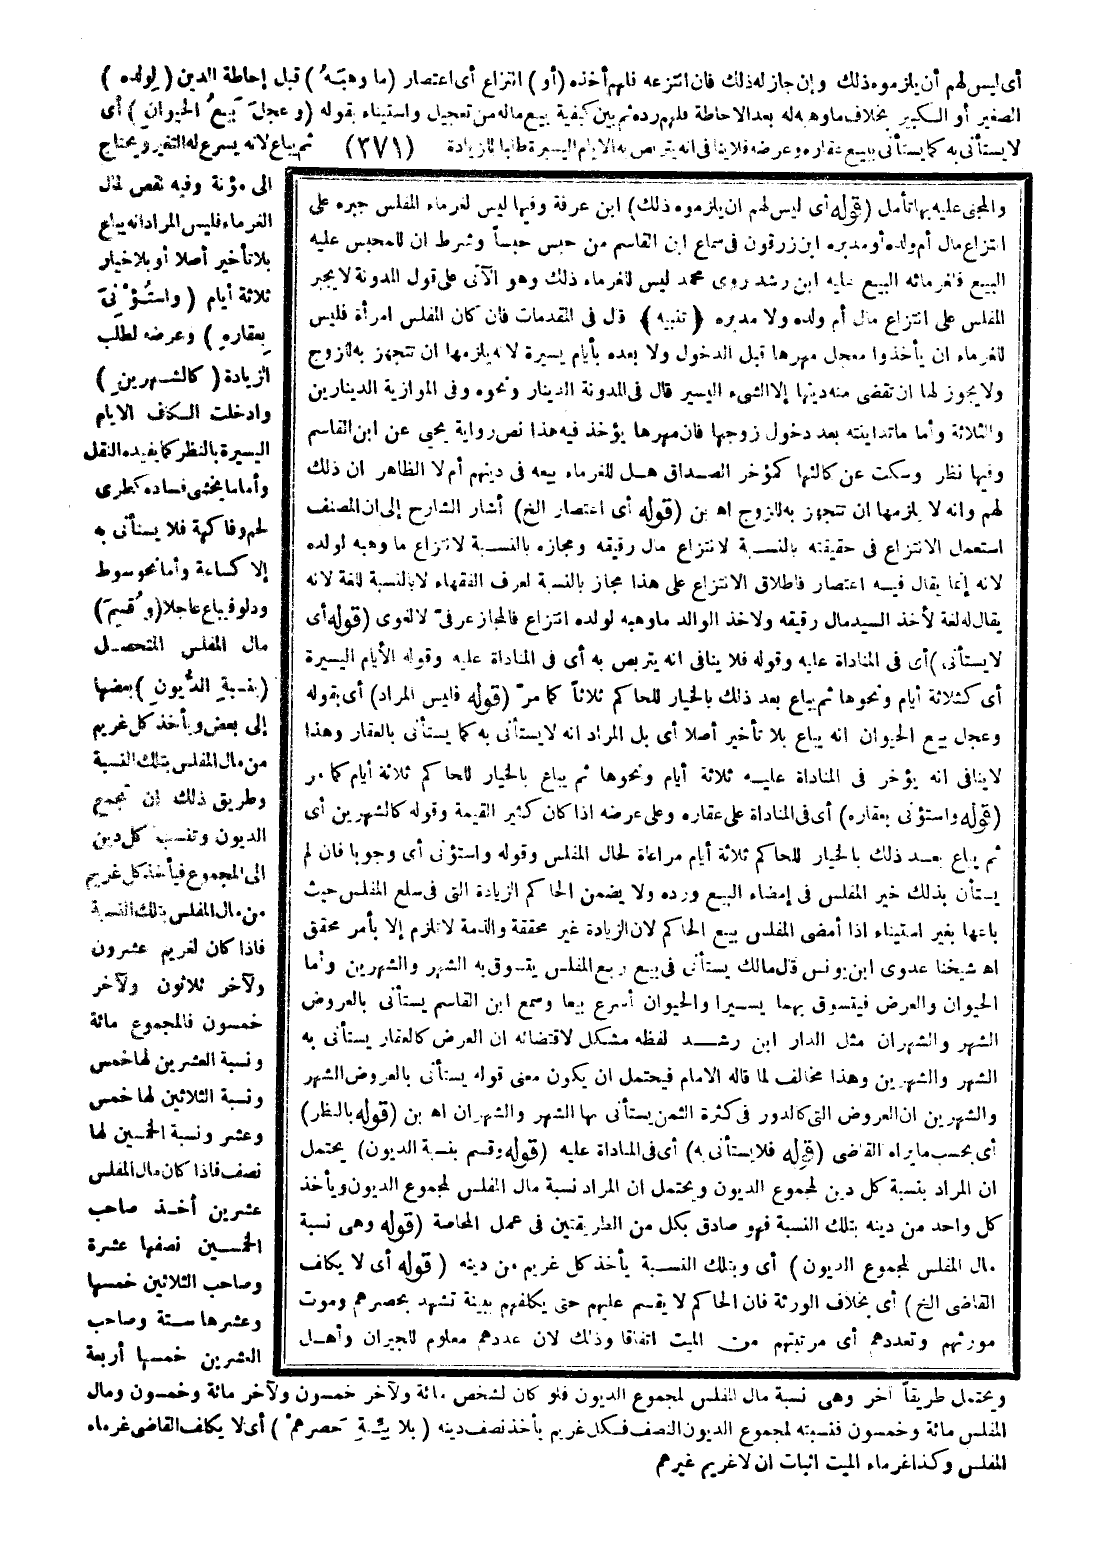 أى ليس لهم أن يلزموه ذلك وإن جاز له ذلك فان انتزعه فلهم أخذه (أو) انتزاع أى اعتصار (ما وهبَهُ) قبل إحاطة الدين (لولده)
الصغير أو الكبير بخلاف ما وهبه له بعد الاحاطة فلهم رده ثم بين كيفية بيع ماله من تعجيل واستيناء بقوله (وعجلَ بَيعُ الحيوانِ) أى
لا يستأنى به كما يستأنى ببيع عقاره وعرضه فلا ينافى انه يتربص به الايام اليسيرة طلبا للزيادة (٣٧١) ثم يباع لانه يسرع له التغير ويحتاج
الى مؤنة وفيه نقص لمال
الغرماء فليس المراد انه يباع
بلا تأخير أصلا أو بلا خيار
ثلاثة أيام (واستُؤْنِىَ
بعقارِه) وعرضه لطلب
الزيادة (كالشهرينِ)
وادخلت الكاف الايام
اليسيرة بالنظر كما يفيده النقل
وأما ما يخشى فساده كطرى
لحم وفاكهة فلا يستأنى به
إلا كساعة وأما نحو سوط
ودلو فيباع عاجلا (وقُسِمَ)
مال المفلس المتحصل
(بنسبةِ الدُّيونِ) بعضها
إلى بعض ويأخذ كل غريم
من مال المفلس بتلك النسبة
وطريق ذلك ان تجمع
الديون وتنسب كل دين
الى المجموع فيأخذ كل غريم
من مال المفلس بتلك النسبة
فاذا كان لغريم عشرون
ولآخر ثلاثون ولآخر
خمسون فالمجموع مائة
ونسبة العشرين لها خمس
ونسبة الثلاثين لها خمس
وعشر ونسبة الخمسين لها
نصف فاذا كان مال المفلس
عشرين أخذ صاحب
الخمسين نصفها عشرة
وصاحب الثلاثين خمسها
وعشرها ستة وصاحب
العشرين خمسها أربعة
ويحتمل طريقاً آخر وهى نسبة مال المفلس لمجموع الديون فلو كان لشخص مائة ولآخر خمسون ولآخر مائة وخمسون ومال
المفلس مائة وخمسون فنسبته لمجموع الديون النصف فكل غريم يأخذ نصف دينه (بلا بيِّنةِ حَصرهمْ) أى لا يكلف القاضى غرماء
المفلس وكذا غرماء الميت اثبات ان لا غريم غيرهم
والمجنى عليه بها تأمل (قوله أى ليس لهم ان يلزموه ذلك) ابن عرفة وفيها ليس لغرماء المفلس جبره على
انتزاع مال أم ولده أو مدبره ابن زرقون فى سماع ابن القاسم من حبس حبساً وشرط ان للمحبس عليه
البيع فلغرمائه البيع عليه ابن رشد روى محمد ليس للغرماء ذلك وهو الآتى على قول المدونة لا يجبر
المفلس على انتزاع مال أم ولده ولا مدبره (تنبيه) قال فى المقدمات فان كان المفلس امرأة فليس
للغرماء ان يأخذوا معجل مهرها قبل الدخول ولا بعده بأيام يسيرة لانه يلزمها ان تتجهز به للزوج
ولا يجوز لها ان تقضى منه دينها إلا الشىء اليسير قال فى المدونة الدينار ونحوه وفى الموازية الدينارين
والثلاثة وأما ما تداينته بعد دخول زوجها فان مهرها يؤخذ فيه هذا نص رواية يحيى عن ابن القاسم
وفيها نظر وسكت عن كالئها كمؤخر الصداق هل للغرماء بيعه فى دينهم أم لا الظاهر ان ذلك
لهم وانه لا يلزمها ان تتجهز به للزوج اه بن (قوله أى اعتصار الخ) أشار الشارح إلى ان المصنف
استعمل الانتزاع فى حقيقته بالنسبة لانتزاع مال رقيقه ومجازه بالنسبة لانتزاع ما وهبه لولده
لانه إنما يقال فيه اعتصار فاطلاق الانتزاع على هذا مجاز بالنسبة لعرف الفقهاء لا بالنسبة للغة لانه
يقال له لغة لأخذ السيد مال رقيقه ولاخذ الوالد ما وهبه لولده انتزاع فالمجاز عرفىّ لا لغوى (قوله أى
لا يستأنى) أى فى المناداة عليه وقوله فلا ينافى انه يتربص به أى فى المناداة عليه وقوله الأيام اليسيرة
أى كثلاثة أيام ونحوها ثم يباع بعد ذلك بالخيار للحاكم ثلاثاً كما مرّ (قوله فليس المراد) أى بقوله
وعجل بيع الحيوان انه يباع بلا تأخير أصلا أى بل المراد انه لا يستأنى به كما يستأنى بالعقار وهذا
لا ينافى انه يؤخر فى المناداة عليه ثلاثة أيام ونحوها ثم يباع بالخيار للحاكم ثلاثة أيام كما مر
(قوله واستؤنى بعقاره) أى فى المناداة على عقاره وعلى عرضه اذا كان كثير القيمة وقوله كالشهرين أى
ثم يباع بعد ذلك بالخيار للحاكم ثلاثة أيام مراعاة لحال المفلس وقوله واستؤنى أى وجوبا فان لم
يستأن بذلك خير المفلس فى إمضاء البيع ورده ولا يضمن الحاكم الزيادة التى فى سلع المفلس حيث
باعها بغير استيناء اذا أمضى المفلس بيع الحاكم لان الزيادة غير محققة والذمة لا تلزم إلا بأمر محقق
اه شيخنا عدوى ابن يونس قال مالك يستأنى فى بيع ربع المفلس يتسوق به الشهر والشهرين وأما
الحيوان والعرض فيتسوق بهما يسيرا والحيوان أسرع بيعا وسمع ابن القاسم يستأنى بالعروض
الشهر والشهران مثل الدار ابن رشد لفظه مشكل لاقتضائه ان العرض كالعقار يستأنى به
الشهر والشهرين وهذا مخالف لما قاله الامام فيحتمل ان يكون معنى قوله يستأنى بالعروض الشهر
والشهرين ان العروض التى كالدور فى كثرة الثمن يستأنى بها الشهر والشهران اه بن (قوله بالنظر)
أى بحسب ما يراه القاضى (قوله فلا يستأنى به) أى فى المناداة عليه (قوله وقسم بنسبة الديون) يحتمل
ان المراد بنسبة كل دين لمجموع الديون ويحتمل ان المراد نسبة مال المفلس لمجموع الديون ويأخذ
كل واحد من دينه بتلك النسبة فهو صادق بكل من الطريقتين فى عمل المحاصة (قوله وهى نسبة
مال المفلس لمجموع الديون) أى وبتلك النسبة يأخذ كل غريم من دينه (قوله أى لا يكلف
القاضى الخ) أى بخلاف الورثة فان الحاكم لا يقسم عليهم حتى يكلفهم بينة تشهد بحصرهم وموت
مورثهم وتعددهم أى مرتبتهم من الميت اتفاقا وذلك لان عددهم معلوم للجيران وأهل